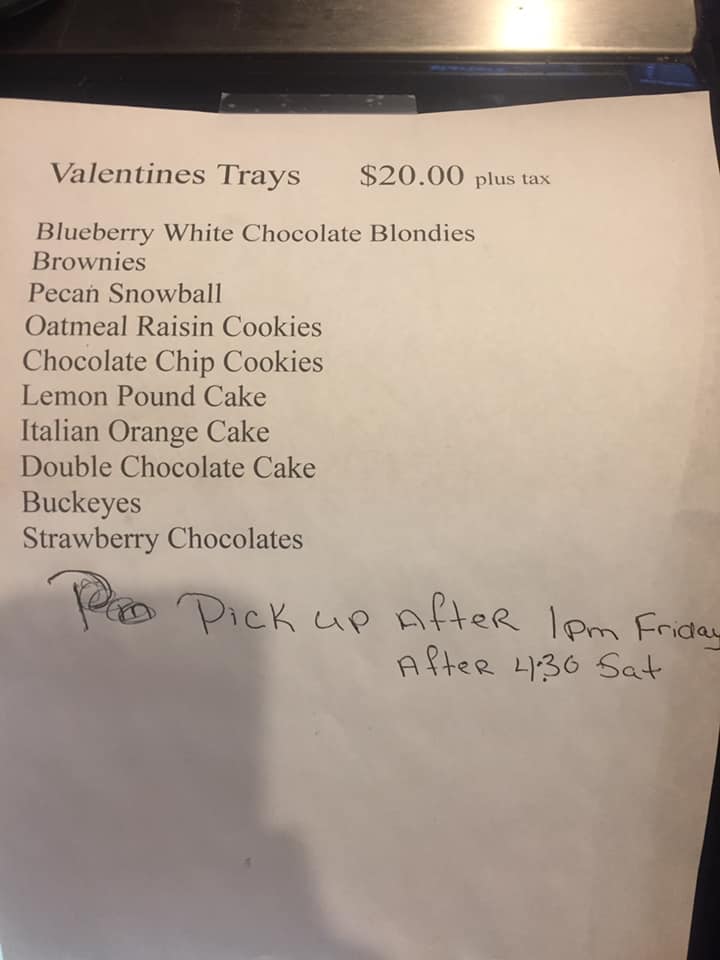 Valentines Trays $20.00 plus tax
Blueberry White Chocolate Blondies
Brownies
Pecan Snowball
Oatmeal Raisin Cookies
Chocolate Chip Cookies
Lemon Pound Cake
Italian Orange Cake
Double Chocolate Cake
Buckeyes
Strawberry Chocolates
Pick up After 1pm Friday
After 4:30 Sat